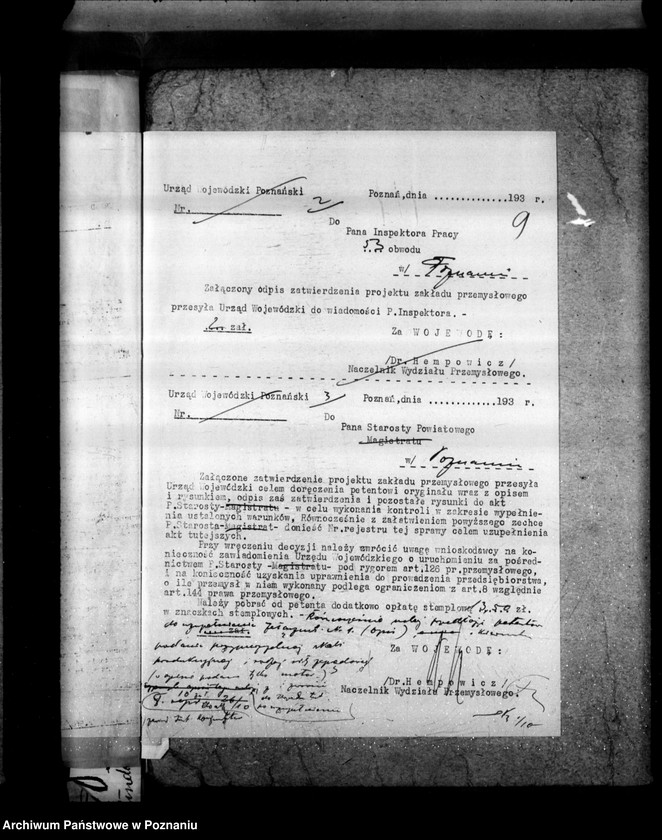 Urząd Wojewódzki Poznański 2 Poznań,dnia ..............193 r.
Nr. 9
Do
Pana Inspektora Pracy
53 obwodu
w/ Poznaniu
Załączony odpis zatwierdzenia projektu zakładu przemysłowego
przesyła Urząd Wojewódzki do wiadomości P.Inspektora. -
zał. Za W O J E W O D Ę :
/Dr. H e m p o w i c z /
Naczelnik Wydziału Przemysłowego.
Urząd Wojewódzki Poznański 3 Poznań,dnia ..............193 r.
Nr.
Do
Pana Starosty Powiatowego
Magistratu
w/ Poznaniu
Załączone zatwierdzenie projektu zakładu przemysłowego przesyła
Urząd Wojewódzki celem doręczenia petentowi oryginału wraz z opisem
i rysunkiem, odpis zaś zatwierdzenia i pozostałe rysunki do akt
P.Starosty-Magistratu - w celu wykonania kontroli w zakresie wypełnie-
nia ustalonych warunków, Równocześnie z załatwieniem powyższego zechce
P.Starosta-Magistrat- donieść Nr.rejestru tej sprawy celem uzupełnienia
akt tutejszych.
Przy wręczeniu decyzji należy zwrócić uwagę wnioskodawcy na ko-
nieczność zawiadomienia Urzędu Wojewódzkiego o uruchomieniu za pośred-
nictwem P.Starosty -Magistratu- pod rygorem art.126 pr.przemysłowego,
i na konieczność uzyskania uprawnienia do prowadzenia przedsiębiorstwa,
o ile przemysł w niem wykonany podlega ograniczeniom z art.8 względnie
art.144 prawa przemysłowego.
Należy pobrać od petenta dodatkowo opłatę stemplową zł.
w znaczkach stemplowych. - Równocześnie należy
do uzupełnienia
Za W O J E W O D Ę :
/Dr. H e m p o w i c z /
Naczelnik Wydziału Przemysłowego.
Archiwum Państwowe w Poznaniu